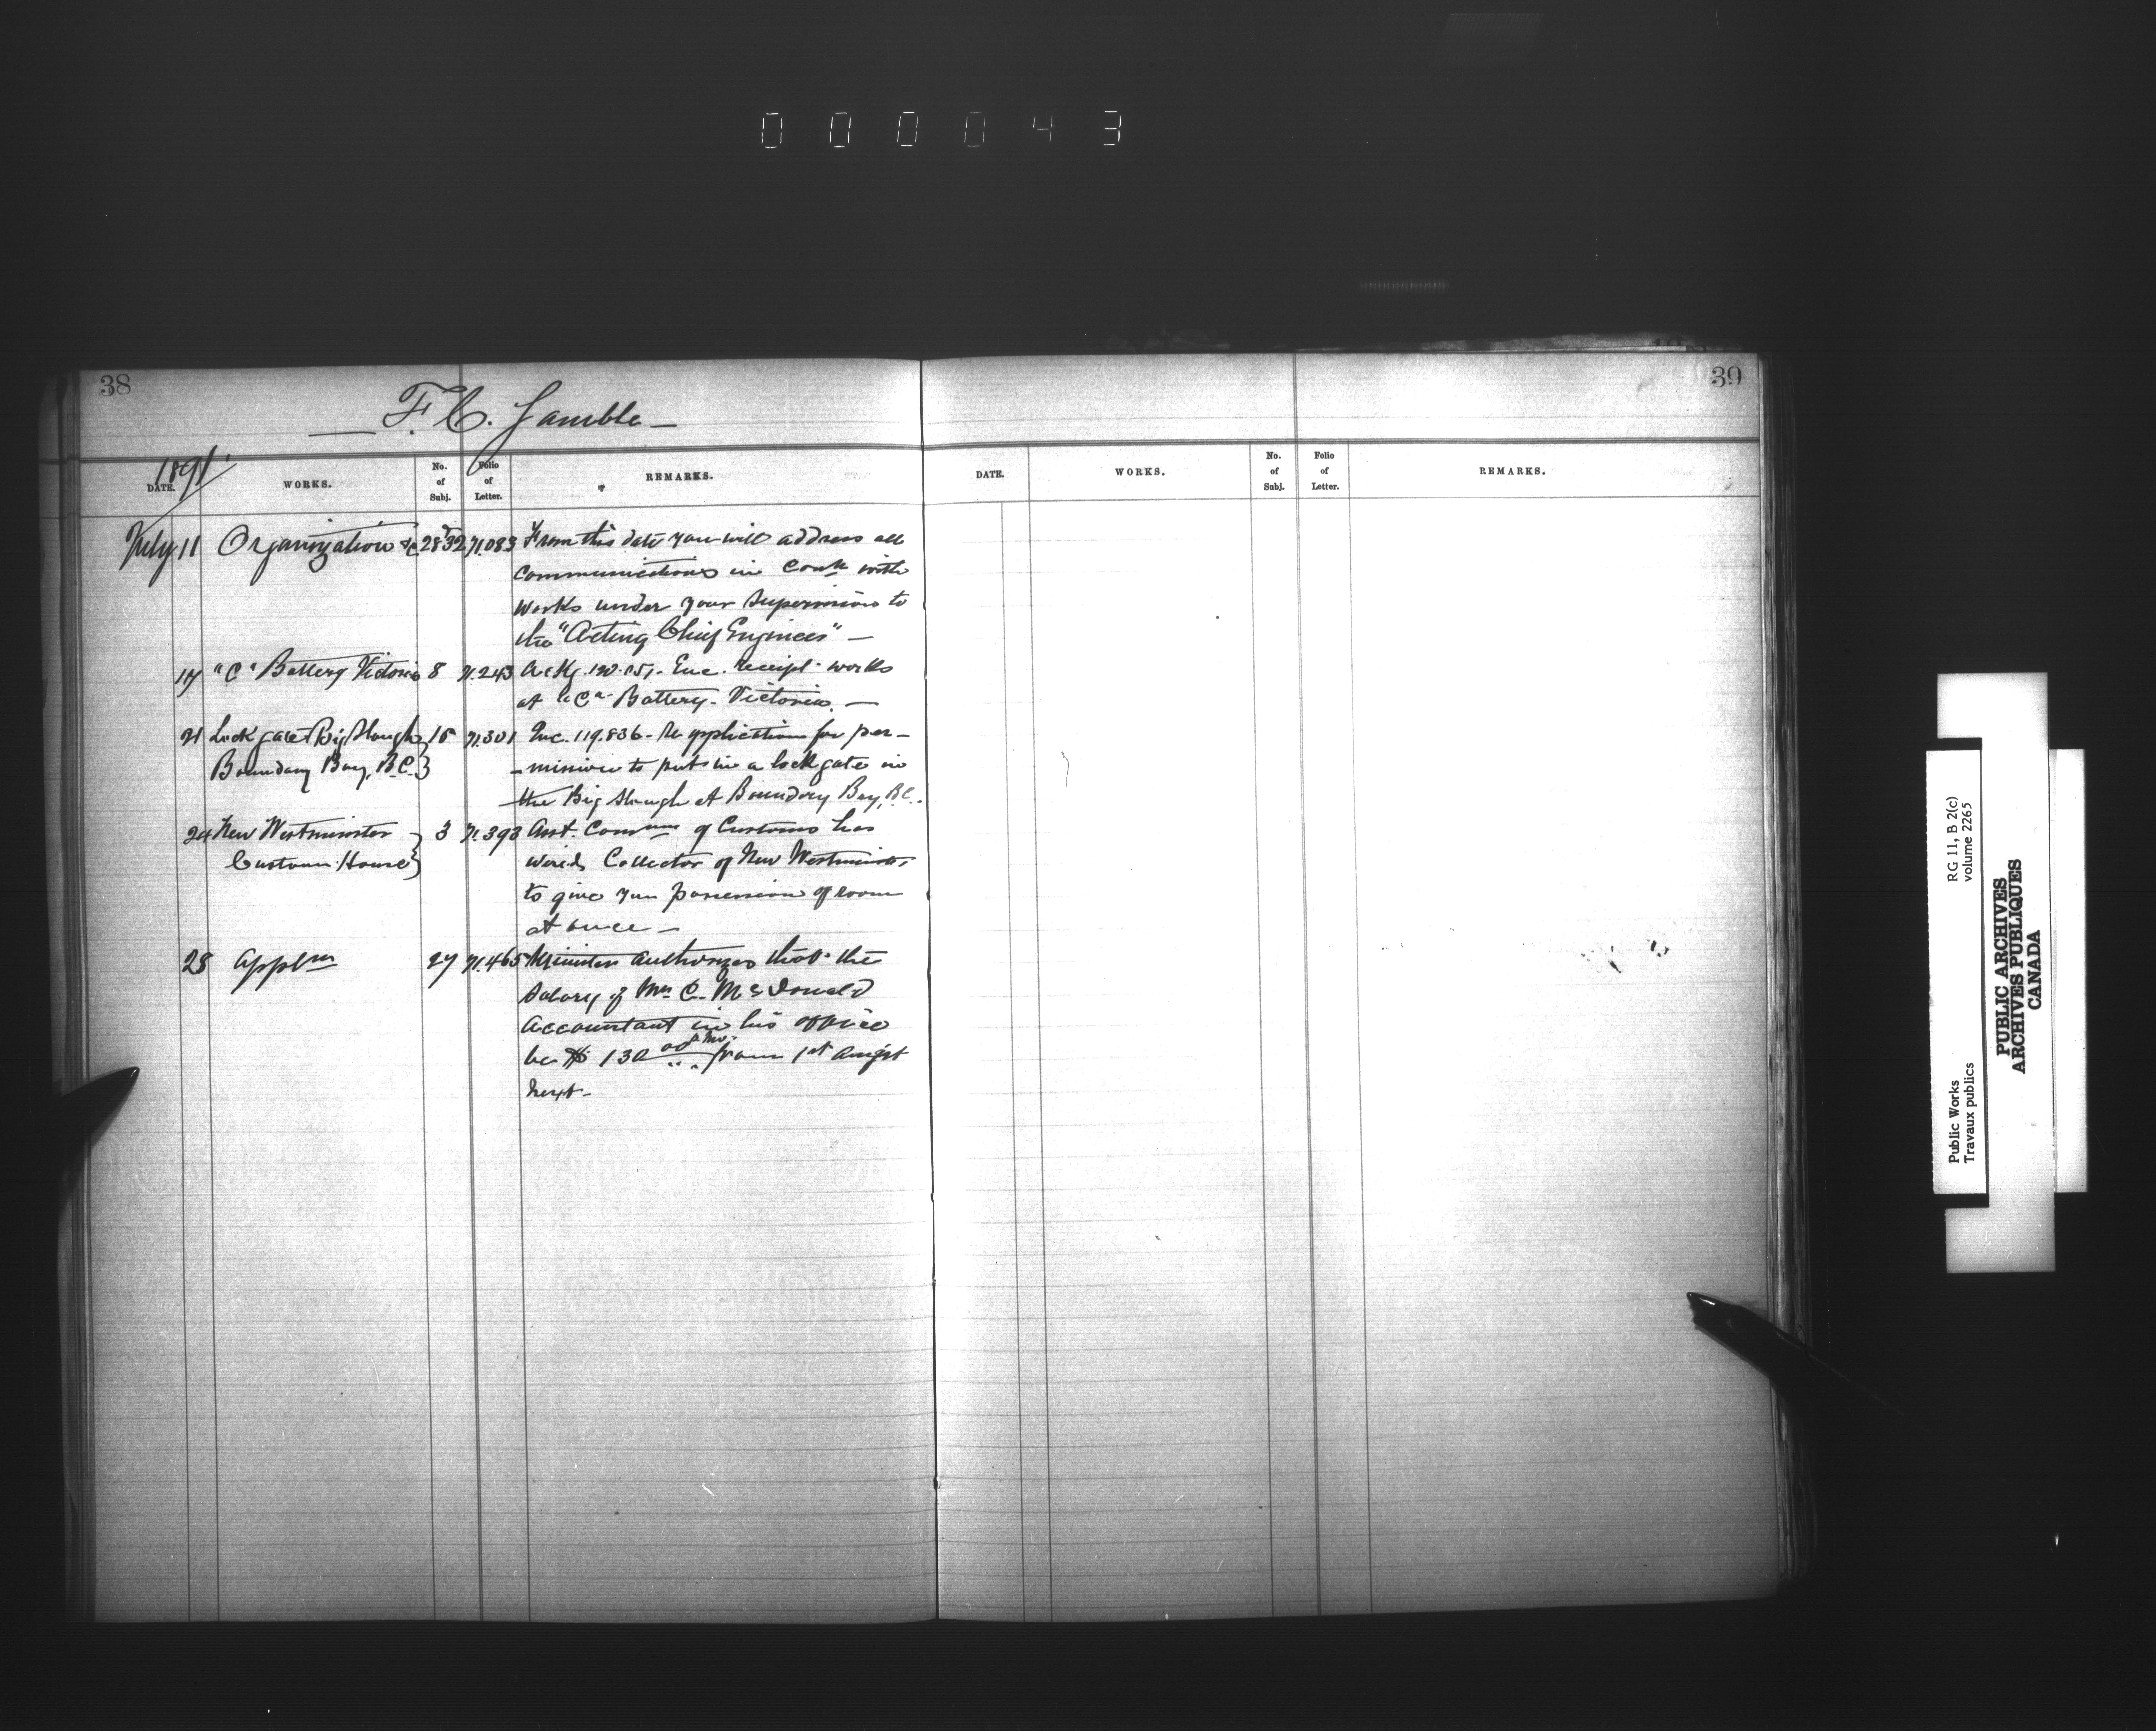 000043
38
F. C. Gamble
1891
DATE. WORKS. No. of Subj. Folio of Letter. REMARKS.
July 11 Organization &c 2832 71.083 From this date you will address all
communications in con with
works under your supervision to
the "Acting Chief Engineer" —
17 "C" Battery Victoria 8 71.243 Enc. receipt works
at "C" Battery - Victoria. —
21 Lock gate Big Slough 15 71.301 Enc. 119.836 - Re application for per-
Boundary Bay, B.C. - mission to put in a lock gate in
the Big Slough at Boundary Bay, B.C.
24 New Westminster 3 71.393 Asst. Comm of Customs has
Custom House wired Collector of New Westminster
to give you possession of room
at once —
28 Appt 27 71.465 Minister authorizes that the
salary of Mr C. McDonald
Accountant in his office
be $ 130 00 p mo. from 1st August
next -
39
DATE. WORKS. No. of Subj. Folio of Letter. REMARKS.
Public Works
Travaux publics
RG 11, B 2(c)
volume 2265
PUBLIC ARCHIVES
ARCHIVES PUBLIQUES
CANADA